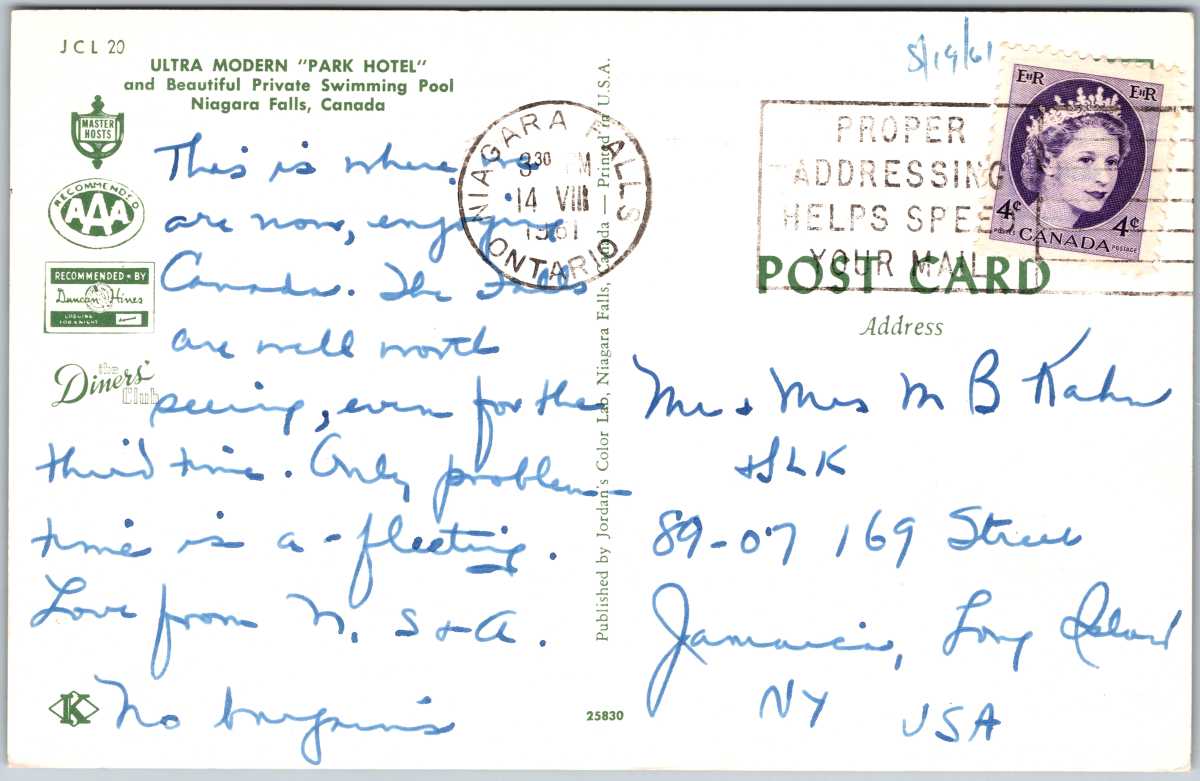 JCL 20
ULTRA MODERN "PARK HOTEL"
and Beautiful Private Swimming Pool
Niagara Falls, Canada
MASTER
HOSTS
RECOMMENDED
AAA
RECOMMENDED BY
Duncan Hines
LODGING
FOR A NIGHT
the
Diners'
Club
This is where we
are now, enjoying
Canada. The Falls
are well worth
seeing, even for the
third time. Only problem—
time is a-fleeting.
Love from N, S & A.
No bargains
K
25830
Published by Jordan's Color Lab, Niagara Falls, Canada — Printed in U.S.A.
NIAGARA FALLS
3 30 PM
14 VIII
1961
ONTARIO
8/19/61
PROPER
ADDRESSING
HELPS SPEED
YOUR MAIL
EIIR
EIIR
4¢
4¢
POSTES CANADA POSTAGE
POST CARD
Address
Mr & Mrs M B Kahn
& SLK
89-07 169 Street
Jamaica, Long Island
NY USA